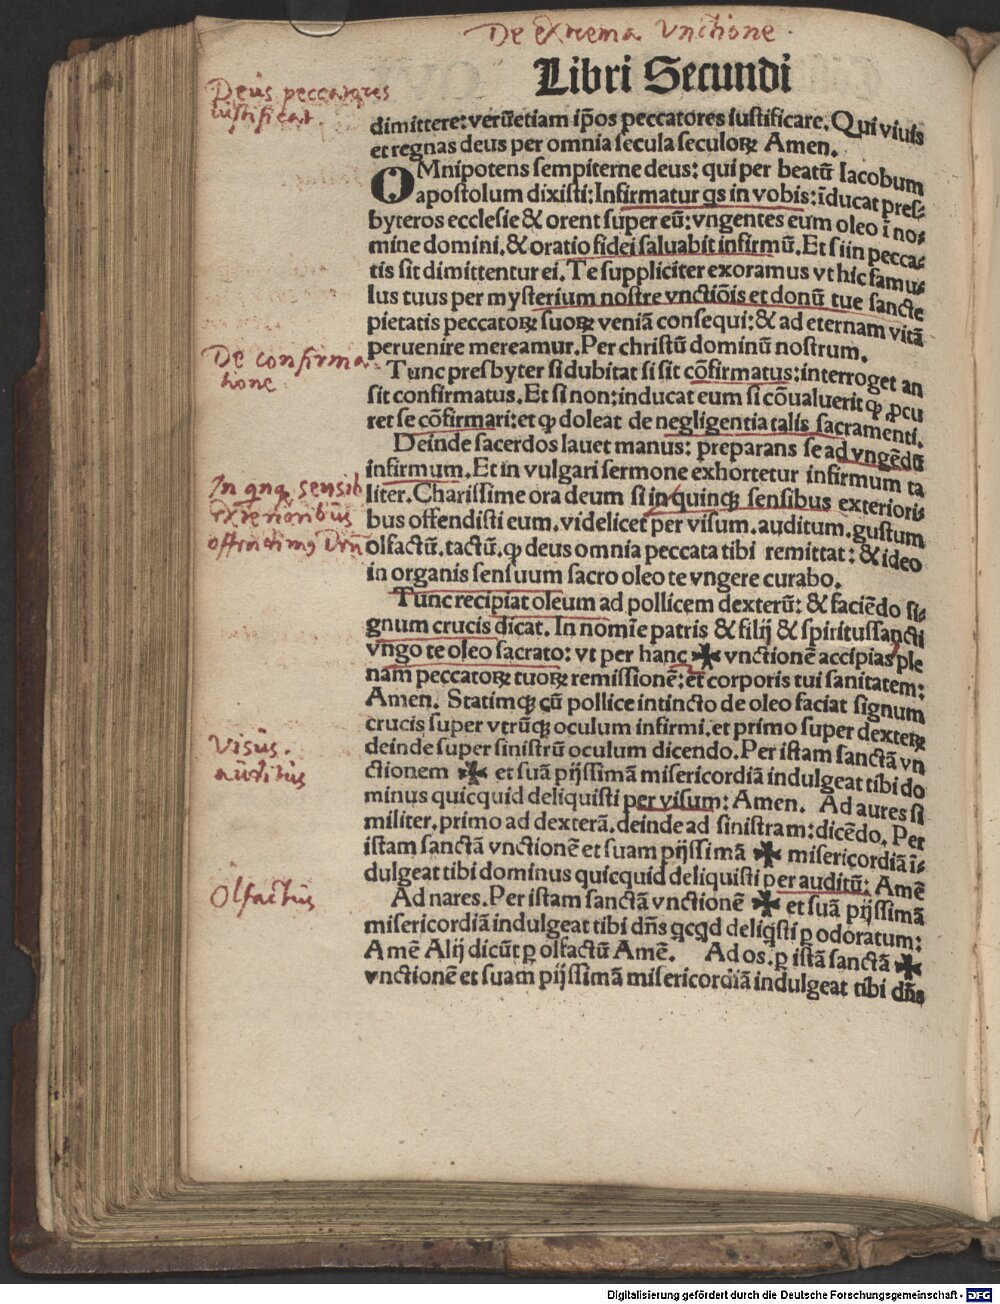 De extrema vnctione.
Libri Secundi
Deus peccatores
iustificat.
dimittere: verūetiam ip̄os peccatores iustificare. Qui viuis
et regnas deus per omnia secula seculoꝝ Amen.
OMnipotens sempiterne deus: qui per beatū Iacobum
apostolum dixisti: Infirmatur qs in vobis: īducat pres⸗
byteros ecclesie & orent super eū: vngentes eum oleo ī no⸗
mine domini. & oratio fidei saluabit infirmū. Et si in pecca⸗
tis sit dimittentur ei. Te suppliciter exoramus vt hic famu⸗
lus tuus per mysterium nostre vnctiōis et donū tue sancte
pietatis peccatoꝝ suoꝝ veniā consequi: & ad eternam vitā
peruenire mereamur. Per christū dominū nostrum.
De confirma
tione.
Tunc presbyter si dubitat si sit cōfirmatus: interroget an
sit confirmatus. Et si non: inducat eum si cōualuerit ꝙ ꝓcu
ret se cōfirmari: et ꝙ doleat de negligentia talis sacramenti.
Deinde sacerdos lauet manus: preparans se ad vngēdū
infirmum. Et in vulgari sermone exhortetur infirmum ta
In qnqꝫ sensib
exterioribus
offendimus
liter. Charissime ora deum si in quinqꝫ sensibus exteriori⸗
bus offendisti eum. videlicet per visum. auditum. gustum
olfactū. tactū. ꝙ deus omnia peccata tibi remittat: & ideo
in organis sensuum sacro oleo te vngere curabo.
Tunc recipiat oleum ad pollicem dexterū: & faciēdo si⸗
gnum crucis dicat. In nomīe patris & filij & spiritussancti
vngo te oleo sacrato: vt per hanc ✠ vnctionē accipias ple
nam peccatoꝝ tuoꝝ remissionē: et corporis tui sanitatem:
Amen. Statimqꝫ cū pollice intincto de oleo faciat signum
crucis super vtrūqꝫ oculum infirmi. et primo super dexteꝝ
Visus.
auditus
deinde super sinistrū oculum dicendo. Per istam sanctā vn
ctionem ✠ et suā pijssimā misericordiā indulgeat tibi do
minus quicquid deliquisti per visum: Amen. Ad aures si
militer. primo ad dexterā. deinde ad sinistram: dicēdo. Per
istam sanctā vnctionē et suam pijssimā ✠ misericordiā ī⸗
dulgeat tibi dominus quicquid deliquisti per auditū: Amē
Olfactus
Ad nares. Per istam sanctā vnctionē ✠ et suā pijssimā
misericordiā indulgeat tibi dn̄s qcqd deliqsti ꝑ odoratum:
Amē Alij dicūt ꝑ olfactū Amē. Ad os. ꝑ istā sanctā ✠
vnctionē et suam pijssimā misericordiā indulgeat tibi dn̄s
Digitalisierung gefördert durch die Deutsche Forschungsgemeinschaft - DFG